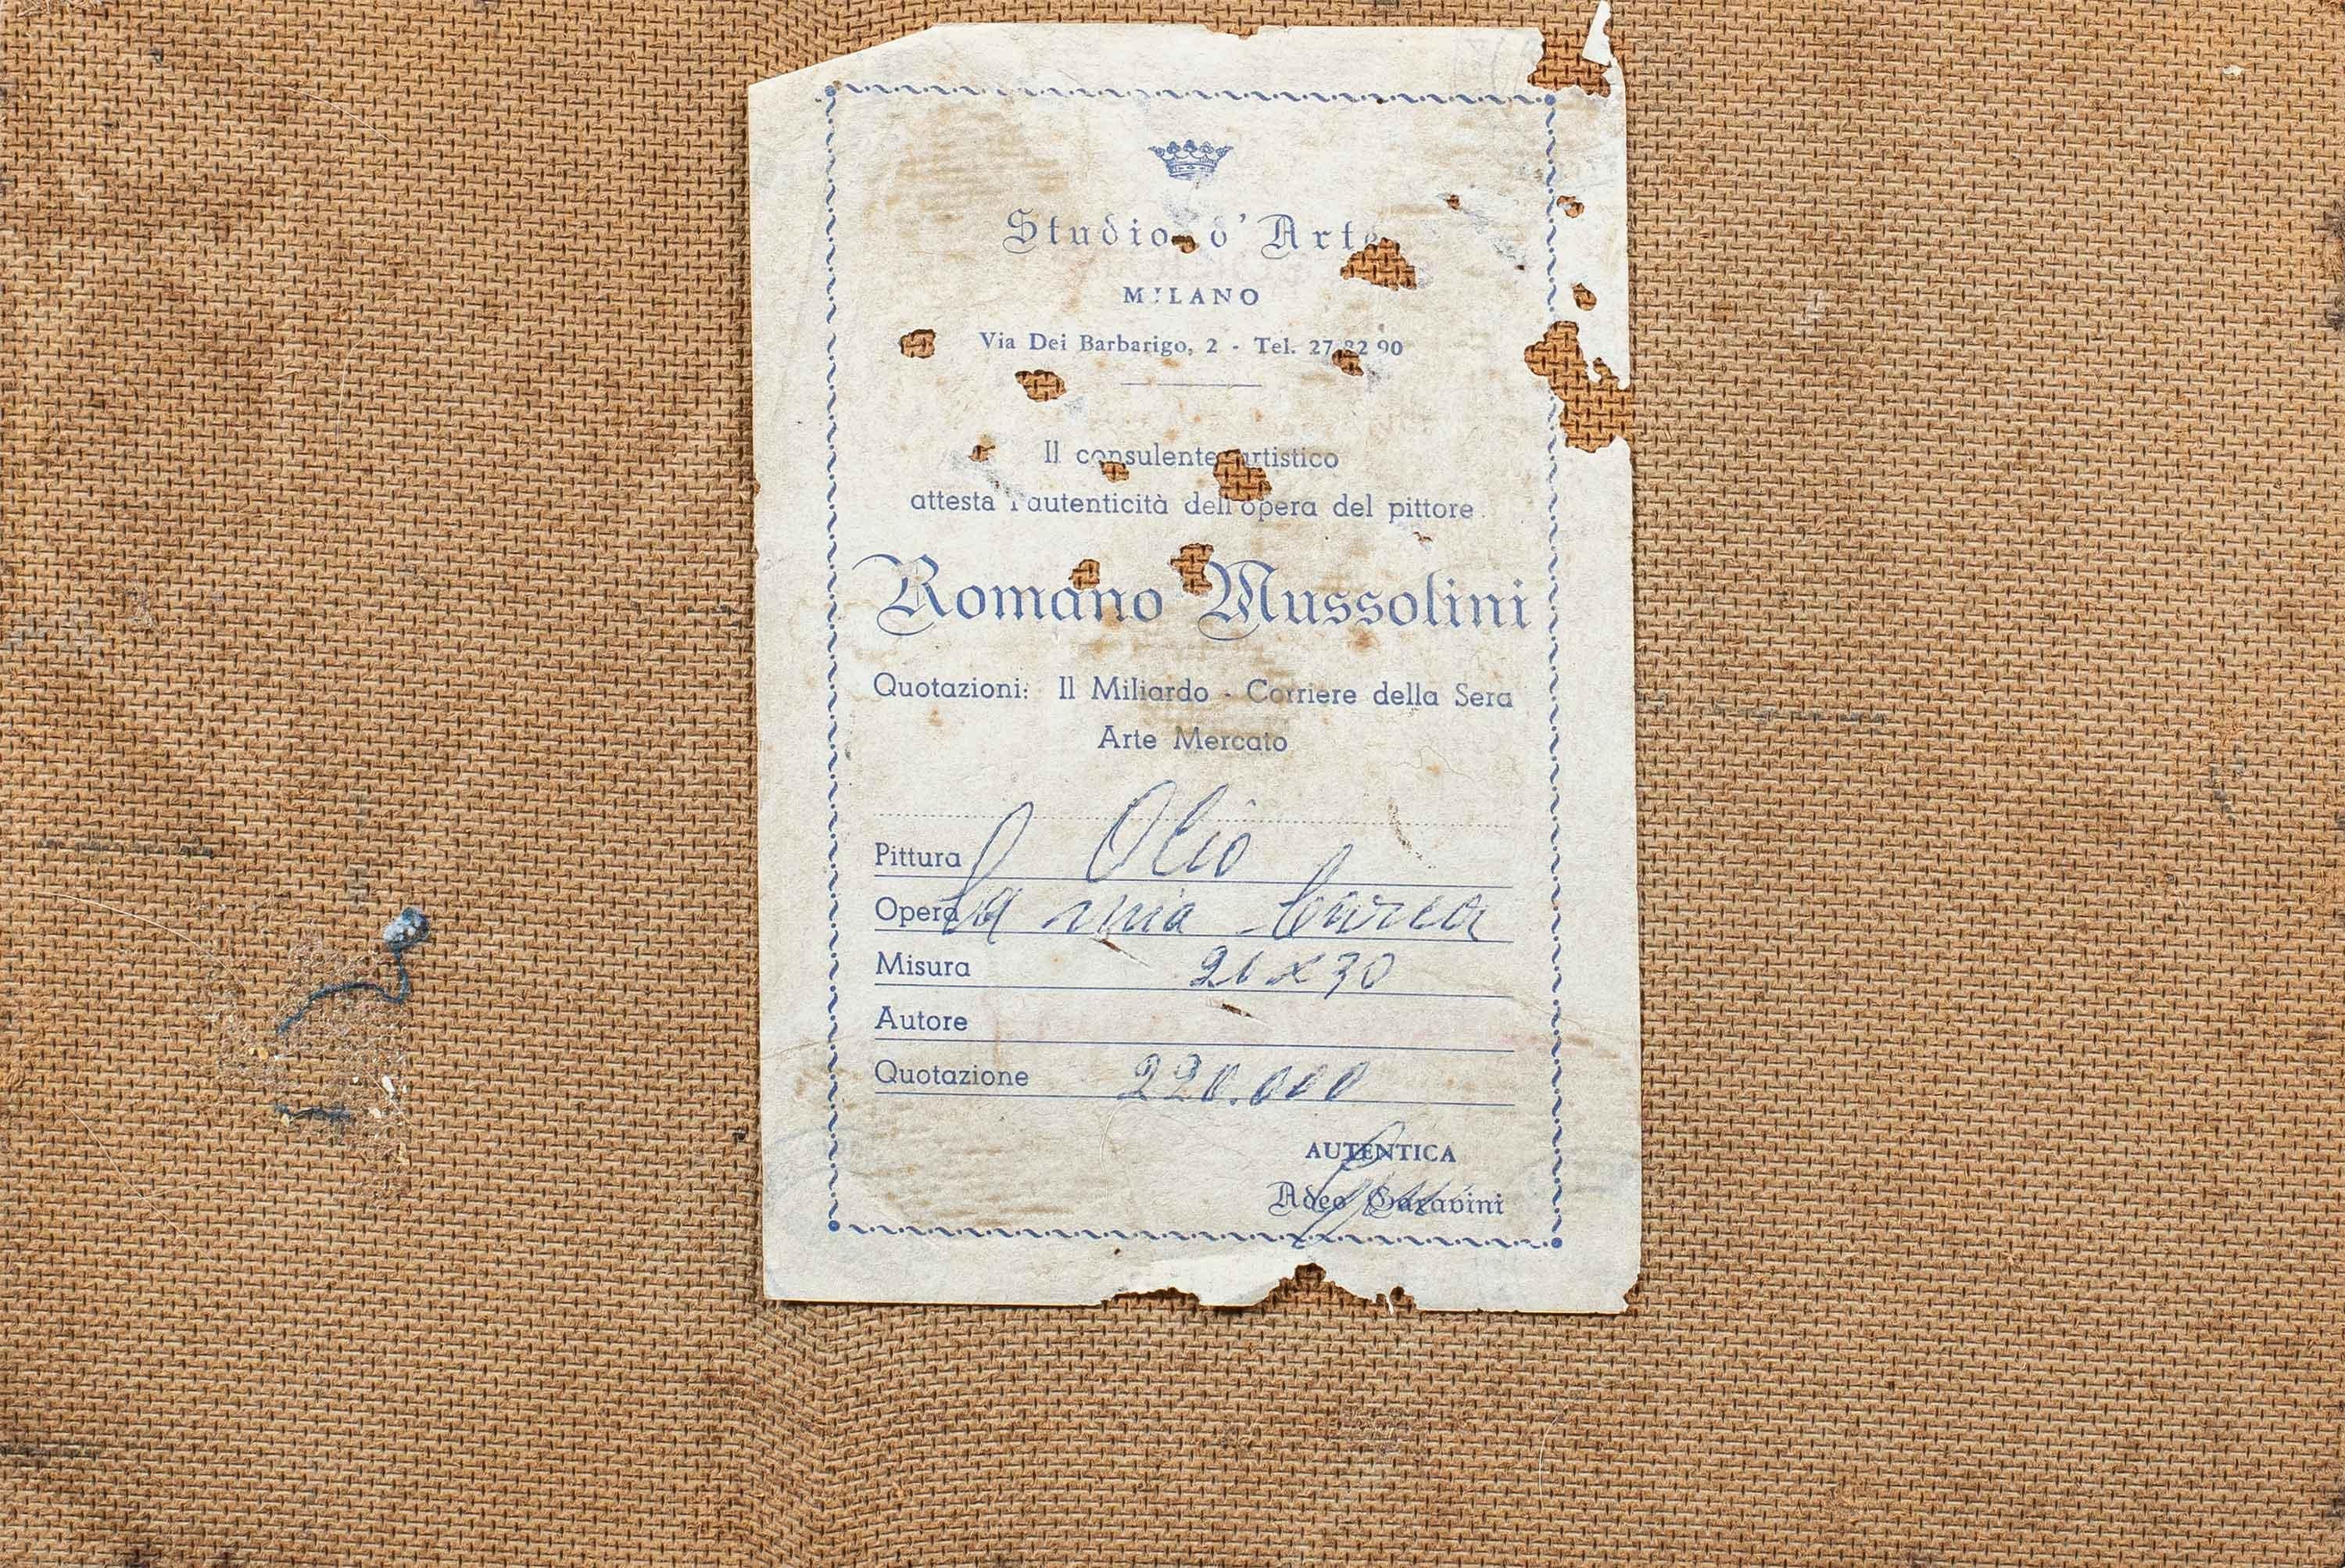 Studio d'Arte
MILANO
Via Dei Barbarigo, 2 - Tel. 27 82 90
Il consulente artistico
attesta l'autenticità dell'opera del pittore
Romano Mussolini
Quotazioni: Il Miliardo - Corriere della Sera
Arte Mercato
Pittura Olio
Opera La mia barca
Misura 21 x 30
Autore
Quotazione 220.000
AUTENTICA
Adeo Garavini